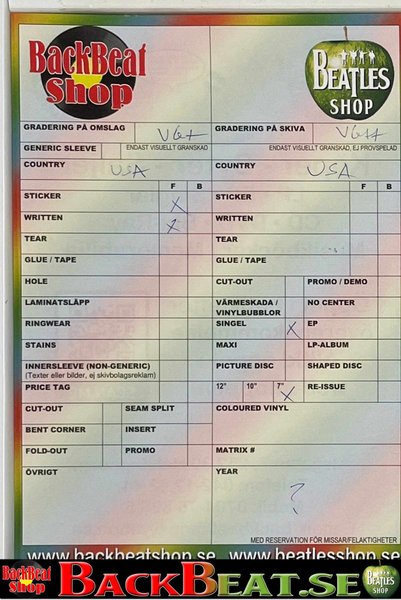 BackBeat
Shop
BEATLES
SHOP
GRADERING PÅ OMSLAG VG+ GRADERING PÅ SKIVA VG++
GENERIC SLEEVE ENDAST VISUELLT GRANSKAD ENDAST VISUELLT GRANSKAD, EJ PROVSPELAD
COUNTRY USA COUNTRY USA
F B F B
STICKER X STICKER
WRITTEN X WRITTEN
TEAR TEAR
GLUE / TAPE GLUE / TAPE
HOLE CUT-OUT PROMO / DEMO
LAMINATSLÄPP VÄRMESKADA / VINYLBUBBLOR NO CENTER
RINGWEAR SINGEL X EP
STAINS MAXI LP-ALBUM
INNERSLEEVE (NON-GENERIC) PICTURE DISC SHAPED DISC
(Texter eller bilder, ej skivbolagsreklam)
PRICE TAG 12" 10" 7" X RE-ISSUE
CUT-OUT SEAM SPLIT COLOURED VINYL
BENT CORNER INSERT
FOLD-OUT PROMO MATRIX #
ÖVRIGT YEAR
?
MED RESERVATION FÖR MISSAR/FELAKTIGHETER
www.backbeatshop.se www.beatlesshop.se
BackBeat
Shop
BACKBEAT.SE
BEATLES
SHOP